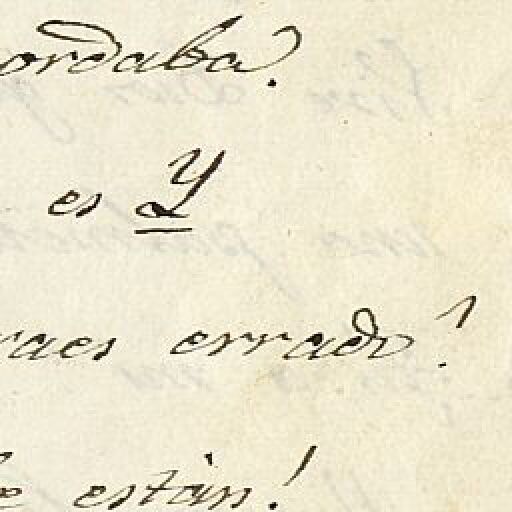 ordaba?
es Y
raes errado?
e están!